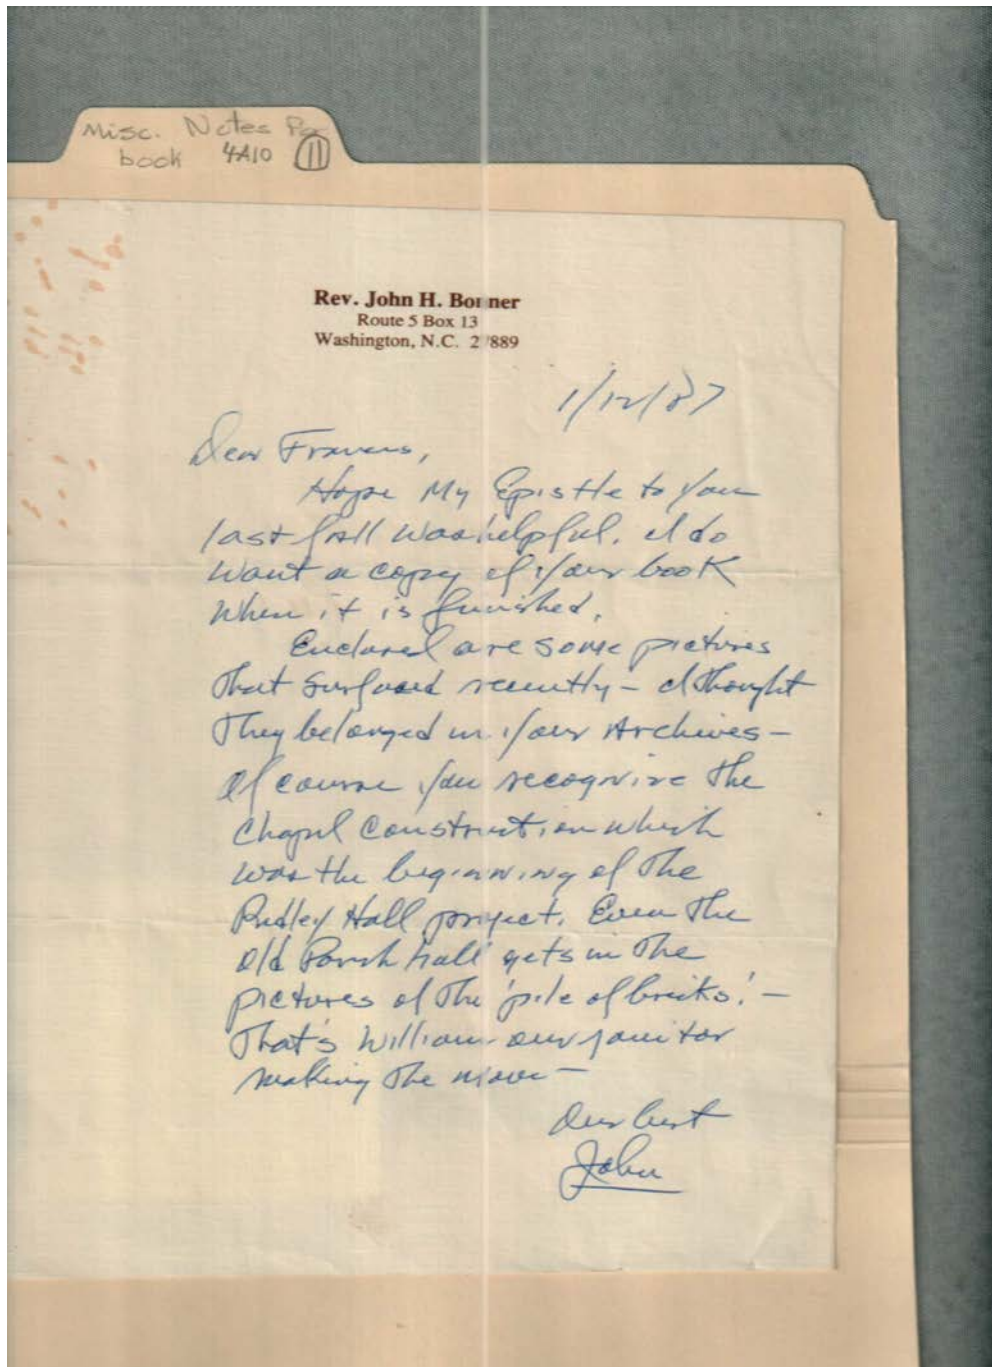 Misc. Notes For
book 4A10 11
Rev. John H. Bonner
Route 5 Box 13
Washington, N.C. 27889
1/12/87
Dear Frances,
Hope My Epistle to you
last fall was helpful. I do
want a copy of your book
when it is finished.
Enclosed are some pictures
that surfaced recently – I thought
they belonged in your Archives –
Of course you recognize the
Chapel Construction which
was the beginning of the
Hall project. Even the
old Parish hall gets in the
pictures of the 'pile of bricks.' –
That's William our janitor
making the move –
Our best
John